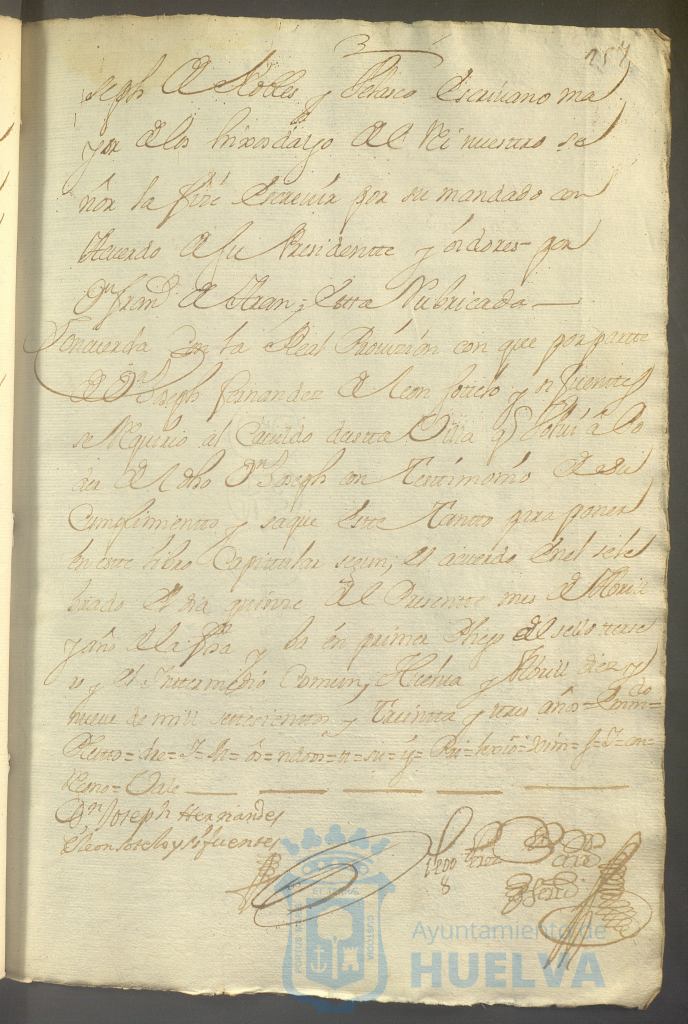 157
seph de Robles y Velasco Escriuano ma
yor de los hixosdalgo del Rei nuestro se
ñor la fize escreuir por su mandado con
Acuerdo de su Presidentte y oidores por
Dn. Frand.
Rubricada
Concuerda con la Real Prouission con que por partte
de Dn. Joseph Fernandez de leon sotelo y sifuenttes
se Requirio al Cauildo desta Villa q. Bolui a Po
der del dho Dn. Joseph con Testimonio de su
Cumplimientto y saque este Tantto para poner
en este libro Capittular segun el acuerdo en el sele
brado el dia quinze del Presente mes de Abril
y año de la fha y ba en primer Pliego del sello terse
ro y el Intermedio Comun, Huelua y Abrill diez y
nueve de mill settecienttos y Treintta y tres año = Enmdo =
Vale
Dn. Joseph Hernandes
de leon soteloy sifuentes
PORTUS MARIS ET TERRAE CUSTODIA
Ayuntamiento de
HUELVA